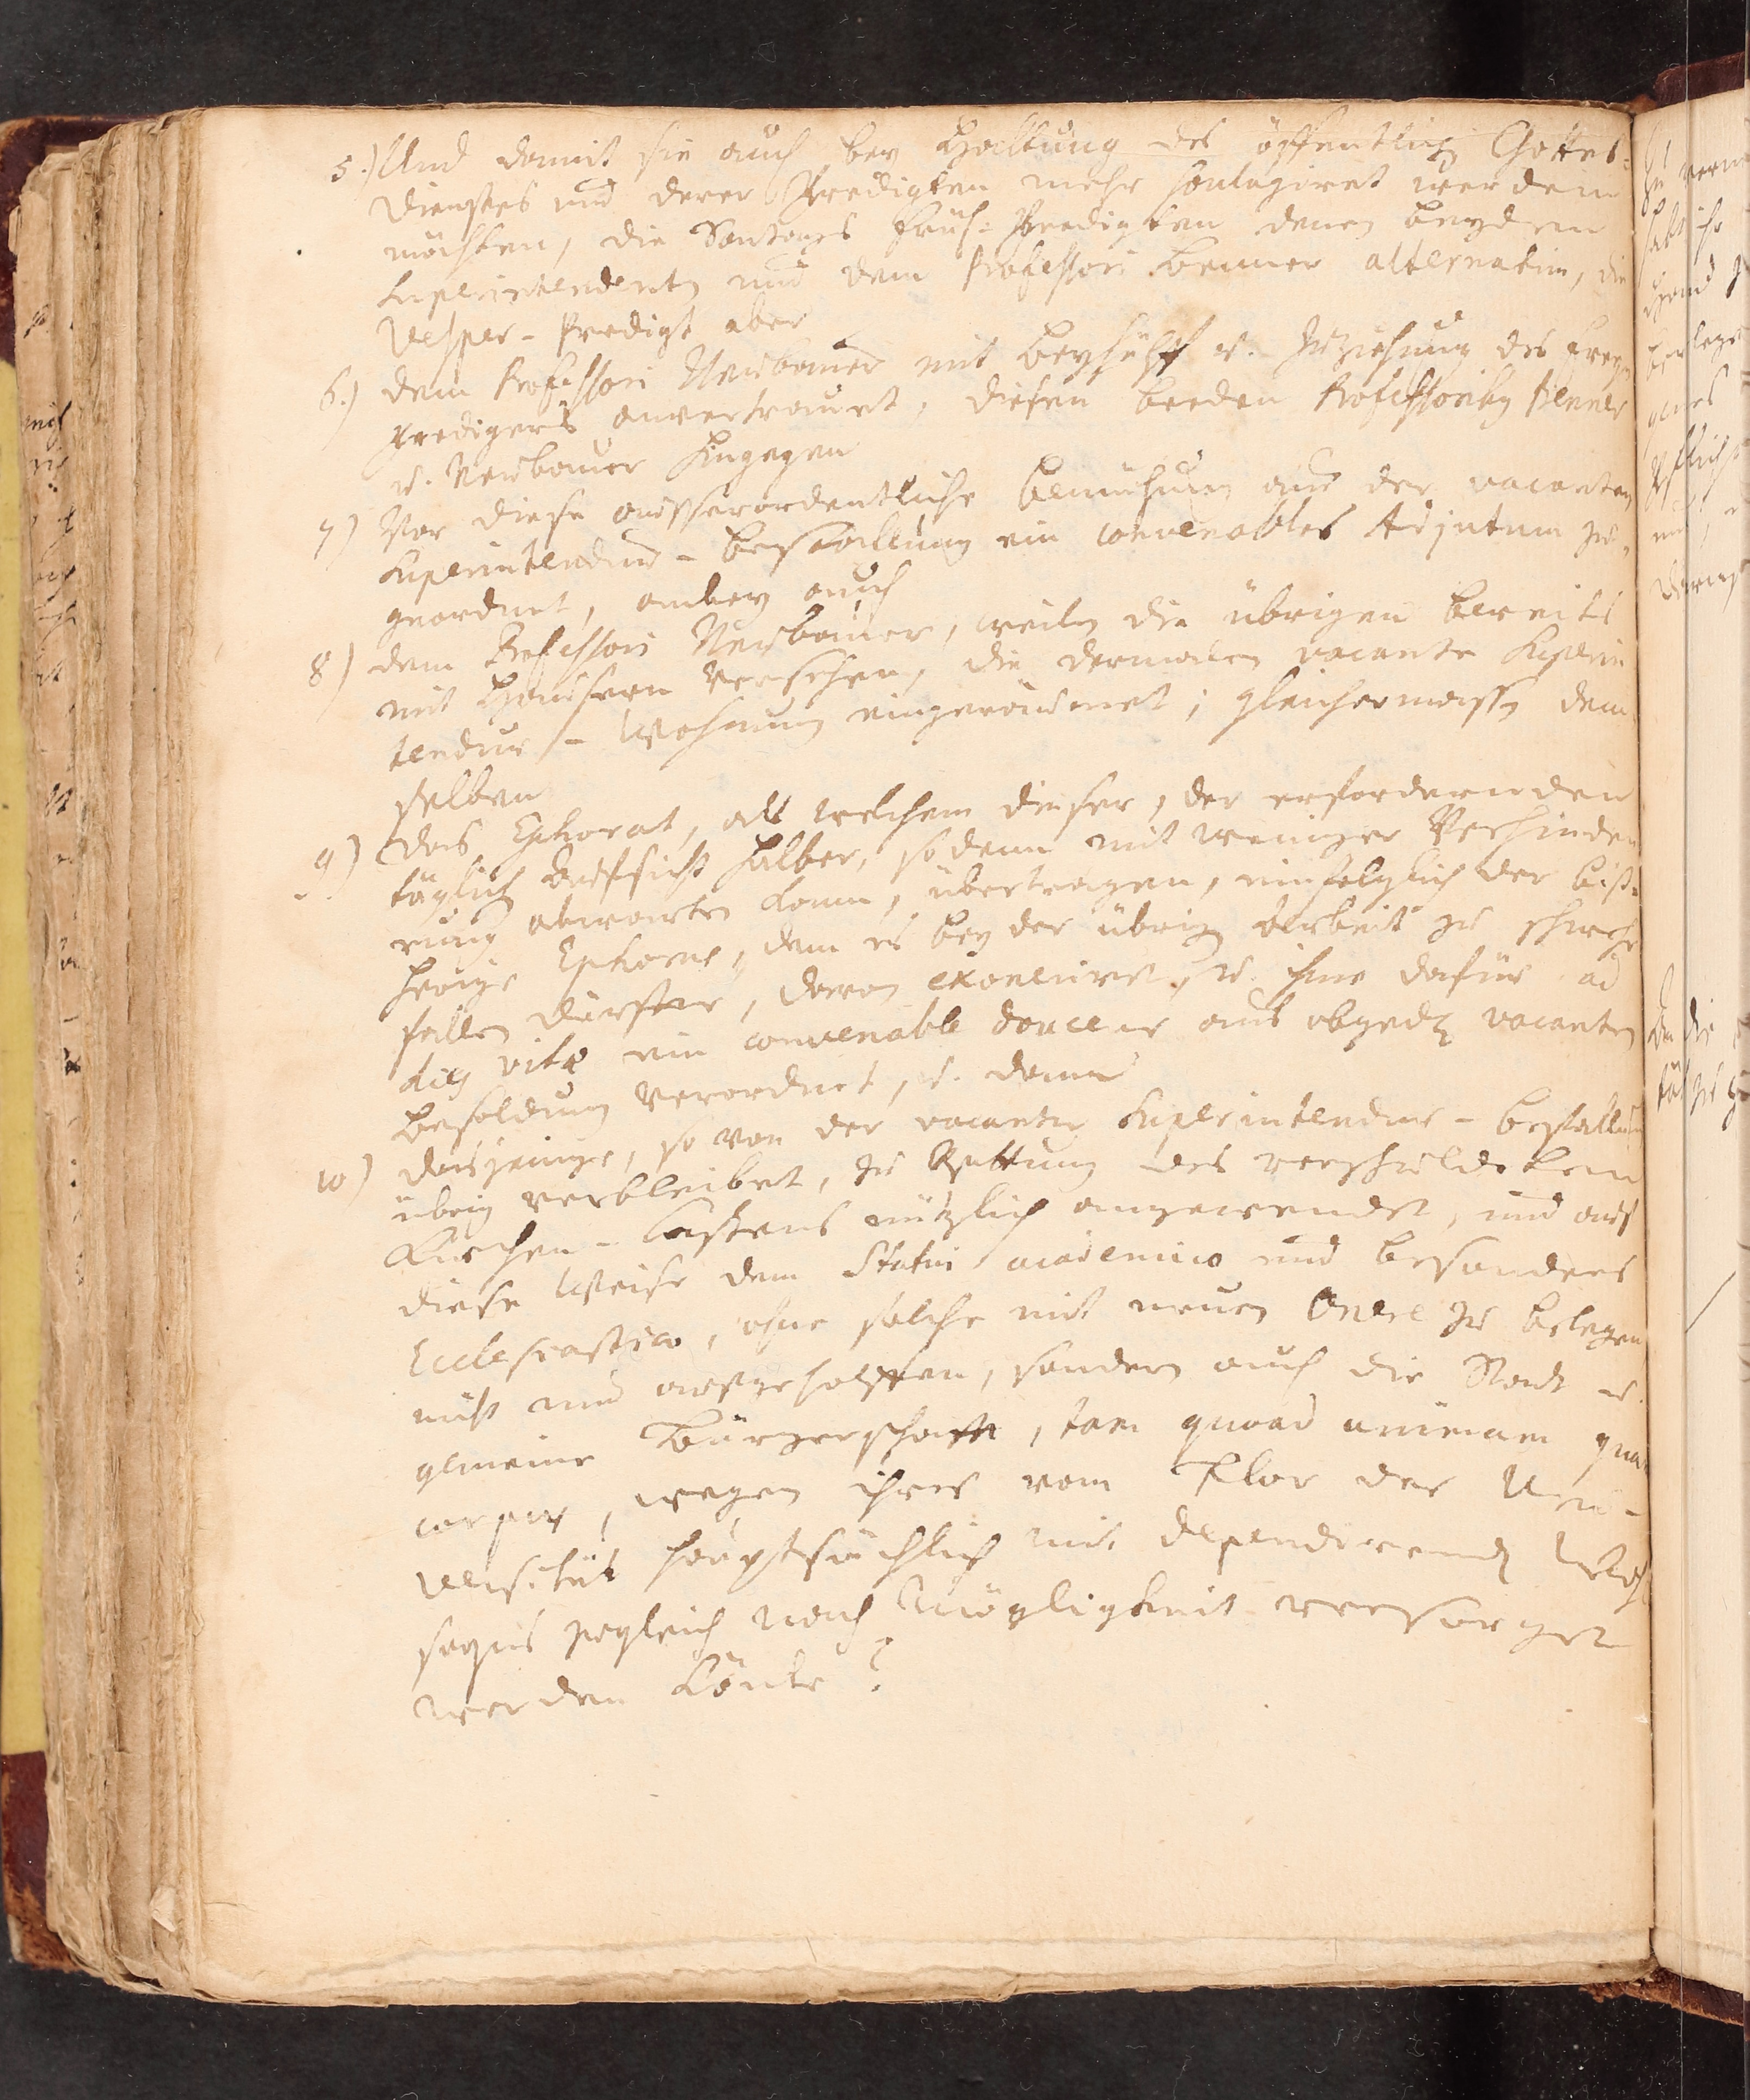 5.) Und damit sie auch bey Haltung des öffentlich Gottes=
Dienstes und derer Predigten mehr soulagiret werden
möchten, die Sontags Früh=Predigten denen beyden
Superintendentn und dem Professori Benner alternatim, die
Vesper-Predigt aber
6.) dem Professori Neubauer mit Beyhülff u. Zuziehung des Frey
Predigers anvertrauet, diesen beeden Professoribq Benner
u. Neubauer hingegen
7) Vor diese ausserordentliche Bemühung aus der vacanten
Superintendur-Besoldung ein convenables Adjutum zu=
geordnet, anbey auch
8) dem Professori Neubauer, weiln die übrigen bereits
mit Häusern versehen, die dermalen vacante Superin
tendur-Wohnung eingeräumet; gleichermassn dem
selben
9) das Ephorat, als welchem dieser, der erfordernden
täglich Aufsicht halber, so dann mit weniger Verhinde
rung abwarten kann, übertragen, einfolglich der biß=
herige Ephorus, dem es bey der übrign Arbeit zu schwehr
fallen dürfte, davon exoneriret, u. ihme dafür ad
dies vitæ ein convenable douceur aus obged. vacanten
Besoldung verordnet, u. dann
10) dasjenige, so von der vacanten Superintendur-Besoldung
übrig verbleibet, zu Rettung des verschuldeten
Kirchen-Kastens nützlich angewendet, und auf
diese Weise dem Statui academico und besonders
Ecclesiastico, ohne solche mit neuen Onere zu belegen
nicht nur aufgeholffen, sondern auch die Stadt u.
gemeine Bürgerschafft, tam quoad animam qua
corpus, wegen ihres vom Flor der Uni-
versität hauptsächlich mit dependirenden Wohl
seyns zugleich nach Mögligkeit versorget
werden könte?